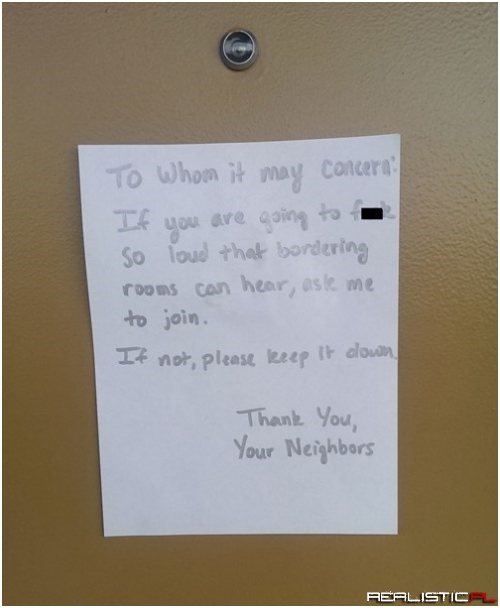 To Whom it may Concern:
If you are going to f
so loud that bordering
rooms can hear, ask me
to join.
If not, please keep it down.
Thank You,
Your Neighbors
REALISTIC.PL